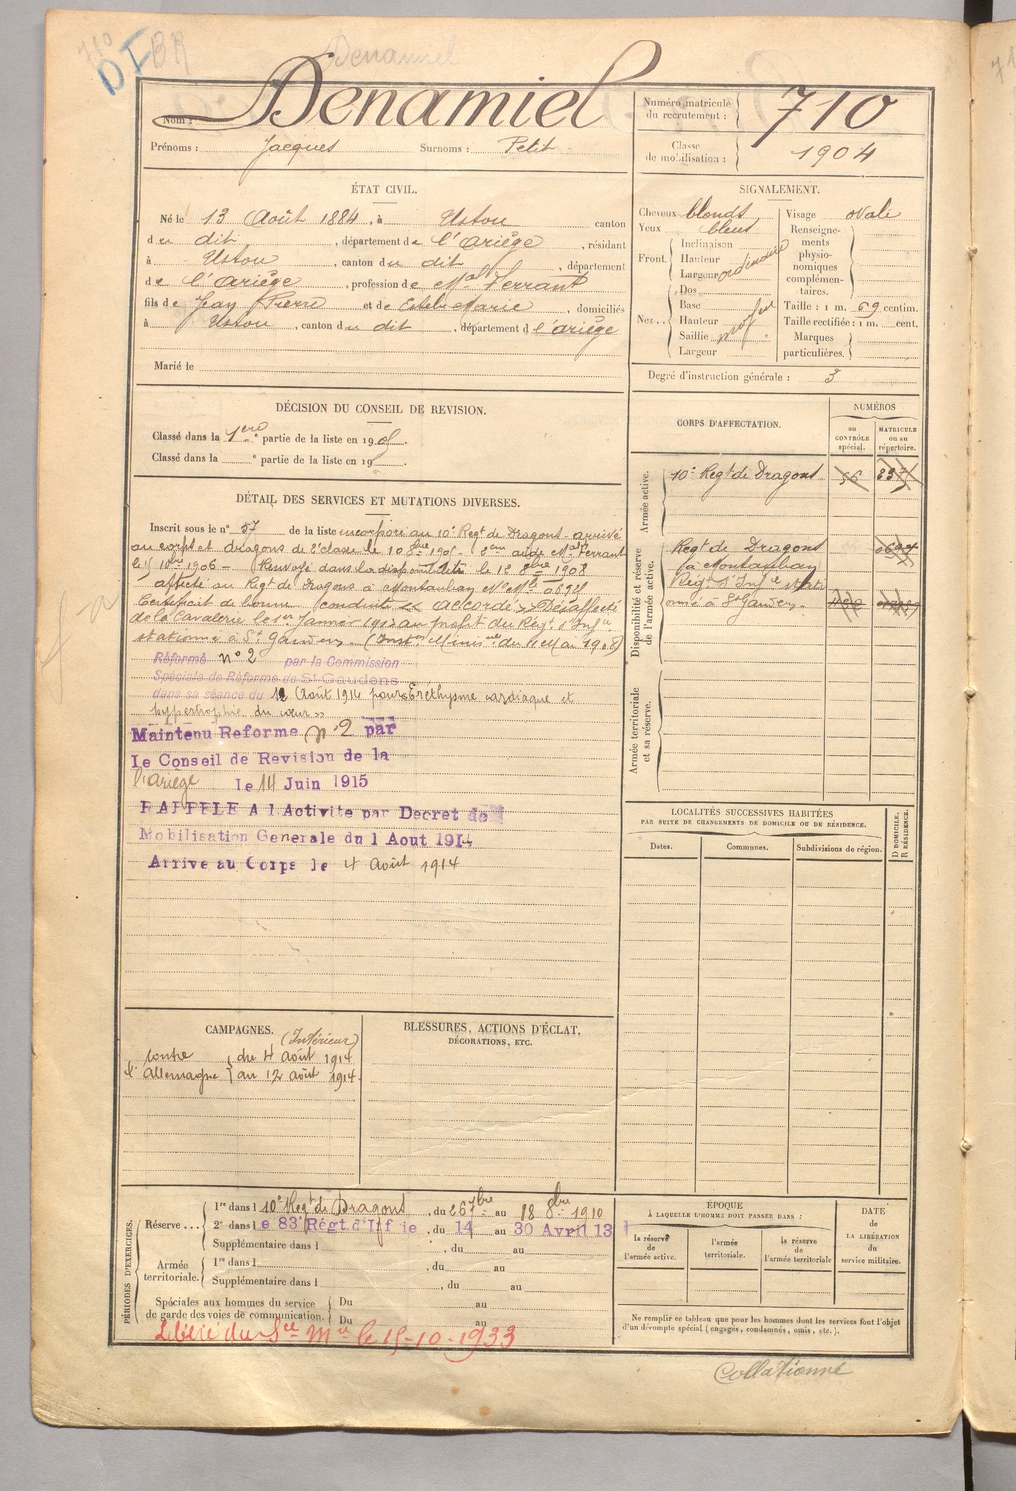 710
DI
BR
Denamiel
Nom : DENAMIEL
Prénoms : Jacques Surnoms : Petit
Numéro matricule du recrutement : 710
Classe de mobilisation : 1904
ÉTAT CIVIL.
Né le 13 Août 1884, à Ustou canton
du dit, département de l'Ariège, résidant
à Ustou, canton du dit, département
de l'Ariège, profession de Mal Ferrant
fils de Jean Pierre et de Estebe Marie, domiciliés
à Ustou, canton du dit, département d l'ariège
Marié le
SIGNALEMENT.
Cheveux blonds
Yeux bleus
Front. Inclinaison
Hauteur
Largeur ordinaire
Nez... Dos
Base
Hauteur
Saillie
Largeur
Visage ovale
Renseignements physionomiques complémentaires.
Taille : 1 m. 69 centim.
Taille rectifiée : 1 m. cent.
Marques particulières.
Degré d'instruction générale : 3
DÉCISION DU CONSEIL DE REVISION.
Classé dans la 1ère partie de la liste en 1905.
Classé dans la e partie de la liste en 19
DÉTAIL DES SERVICES ET MUTATIONS DIVERSES.
Inscrit sous le n° 57 de la liste incorporé au 10e Regt de Dragons arrivé
au corps et dragons de 2e classe le 10 8bre 190 . 2eme aide Mal Ferrant
le 15 10bre 1906 — Renvoyé dans la disponibilité le 12 8bre 1908
affecté au Regt de Dragons à Montauban No Mle 0692
Certificat de bonne conduite << accordé >> Désaffecté
de la Cavalerie le 1er Janvier 1912 au profit du Regt d'Infie
stationné à St Gaudens (Inston Ministelle du 11 Mai 1908)
Réformé n° 2 par la Commission
Spéciale de Réforme de St Gaudens
dans sa séance du 12 Août 1914 pour « Eréthysme cardiaque et
hypertrophie du cœur »
Maintenu Reforme n° 2 par
le Conseil de Revision de la
l'Ariège le 14 Juin 1915
RAPPELE A l Activite par Decret de
Mobilisation Generale du 1 Aout 1914
Arrive au Corps le 4 Août 1914
CORPS D'AFFECTATION.
NUMÉROS
au contrôle spécial.
matricule ou au répertoire.
Armée active.
10e Regt de Dragons 56
Disponibilité et réserve de l'armée active.
Regt de Dragons
à Montauban
Regt d'Infie stati
onné à St Gaudens
Armée territoriale et sa réserve.
LOCALITÉS SUCCESSIVES HABITÉES
PAR SUITE DE CHANGEMENTS DE DOMICILE OU DE RÉSIDENCE.
Dates. Communes. Subdivisions de région. D DOMICILE. R RÉSIDENCE.
CAMPAGNES.
(Intérieur)
contre du 4 août 1914
l'allemagne au 12 août 1914
BLESSURES, ACTIONS D'ÉCLAT,
DÉCORATIONS, ETC.
PÉRIODES D'EXERCICES.
Réserve... 1re dans l 10e Regt de Dragons, du 26 7bre au 18 8bre 1910
2e dans l e 83 Régt d'Inf ie, du 14 au 30 Avril 13
Supplémentaire dans l , du au
Armée territoriale. 1re dans l , du au
Supplémentaire dans l , du au
Spéciales aux hommes du service de garde des voies de communication. Du au
Du au
Libéré du Sce Mre le 15-10-1933
ÉPOQUE
À LAQUELLE L'HOMME DOIT PASSER DANS :
la réserve de l'armée active.
l'armée territoriale.
la réserve de l'armée territoriale
DATE de LA LIBÉRATION du service militaire.
Ne remplir ce tableau que pour les hommes dont les services font l'objet
d'un décompte spécial (engagés, condamnés, omis, etc.).
Collationné